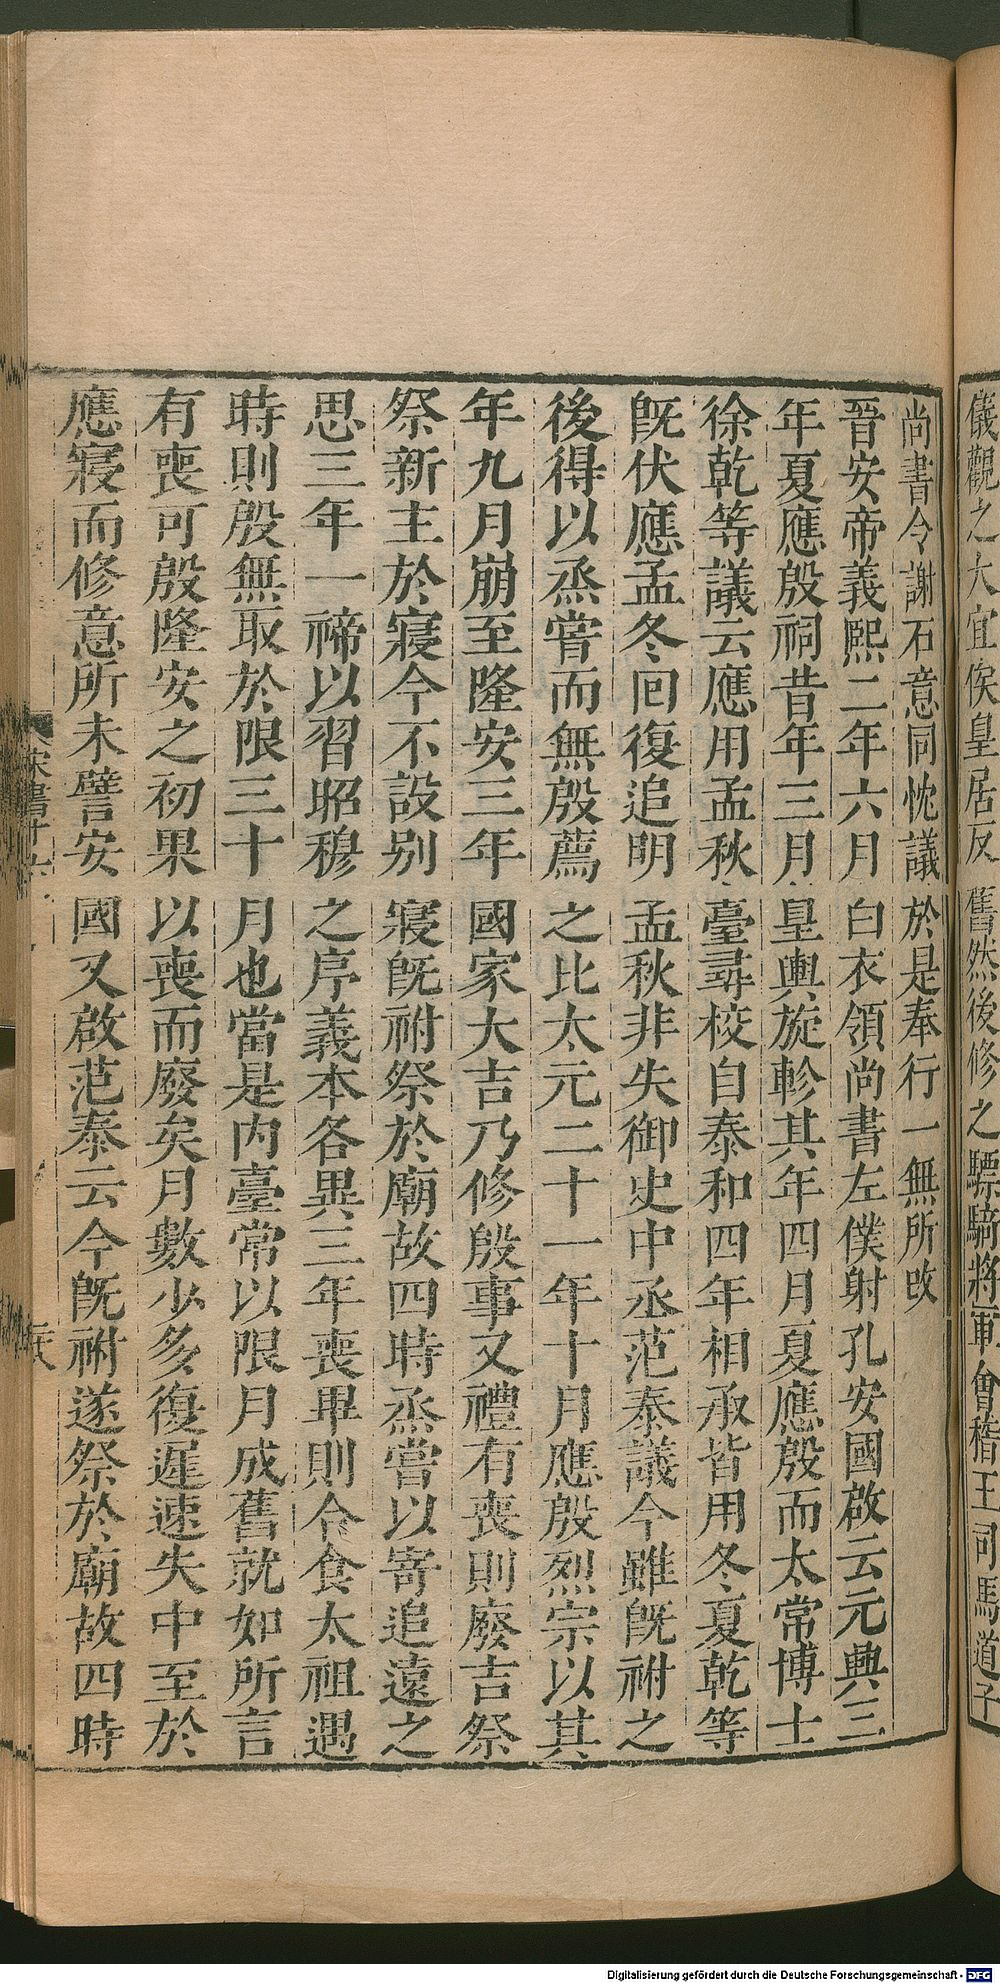 儀觀之大宜俟皇居反舊然後修之驃騎將軍會稽王司馬道子
尚書令謝石意同忱議於是奉行一無所改
晉安帝義熙二年六月白衣領尚書左僕射孔安國啟云元興三
年夏應殷祠昔年三月皇輿旋軫其年四月夏應殷而太常博士
徐乾等議云應用孟秋臺尋校自泰和四年相承皆用冬夏乾等
旣伏應孟冬回復追明孟秋非失御史中丞范泰議今雖旣祔之
後得以烝嘗而無殷薦之比太元二十一年十月應殷烈宗以其
年九月崩至隆安三年國家大吉乃修殷事又禮有喪則廢吉祭
祭新主於寢今不設别寢旣祔祭於廟故四時烝嘗以寄追遠之
思三年一禘以習昭穆之序義本各異三年喪畢則合食太祖遇
時則殷無取於限三十月也當是內臺常以限月成舊就如所言
有喪可殷隆安之初果以喪而廢矣月數少多復遲速失中至於
應寢而修意所未譬安國又啟范泰云今旣祔遂祭於廟故四時
宋書十六
Digitalisierung gefördert durch die Deutsche Forschungsgemeinschaft - DFG